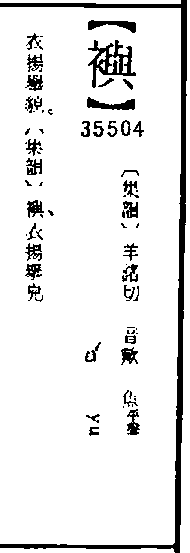 【襖】
35504
〔集韻〕羊諸切 音歟 魚平聲
ㄩˊ yu
衣揚舉貌。〔集韻〕襖、衣揚舉皃